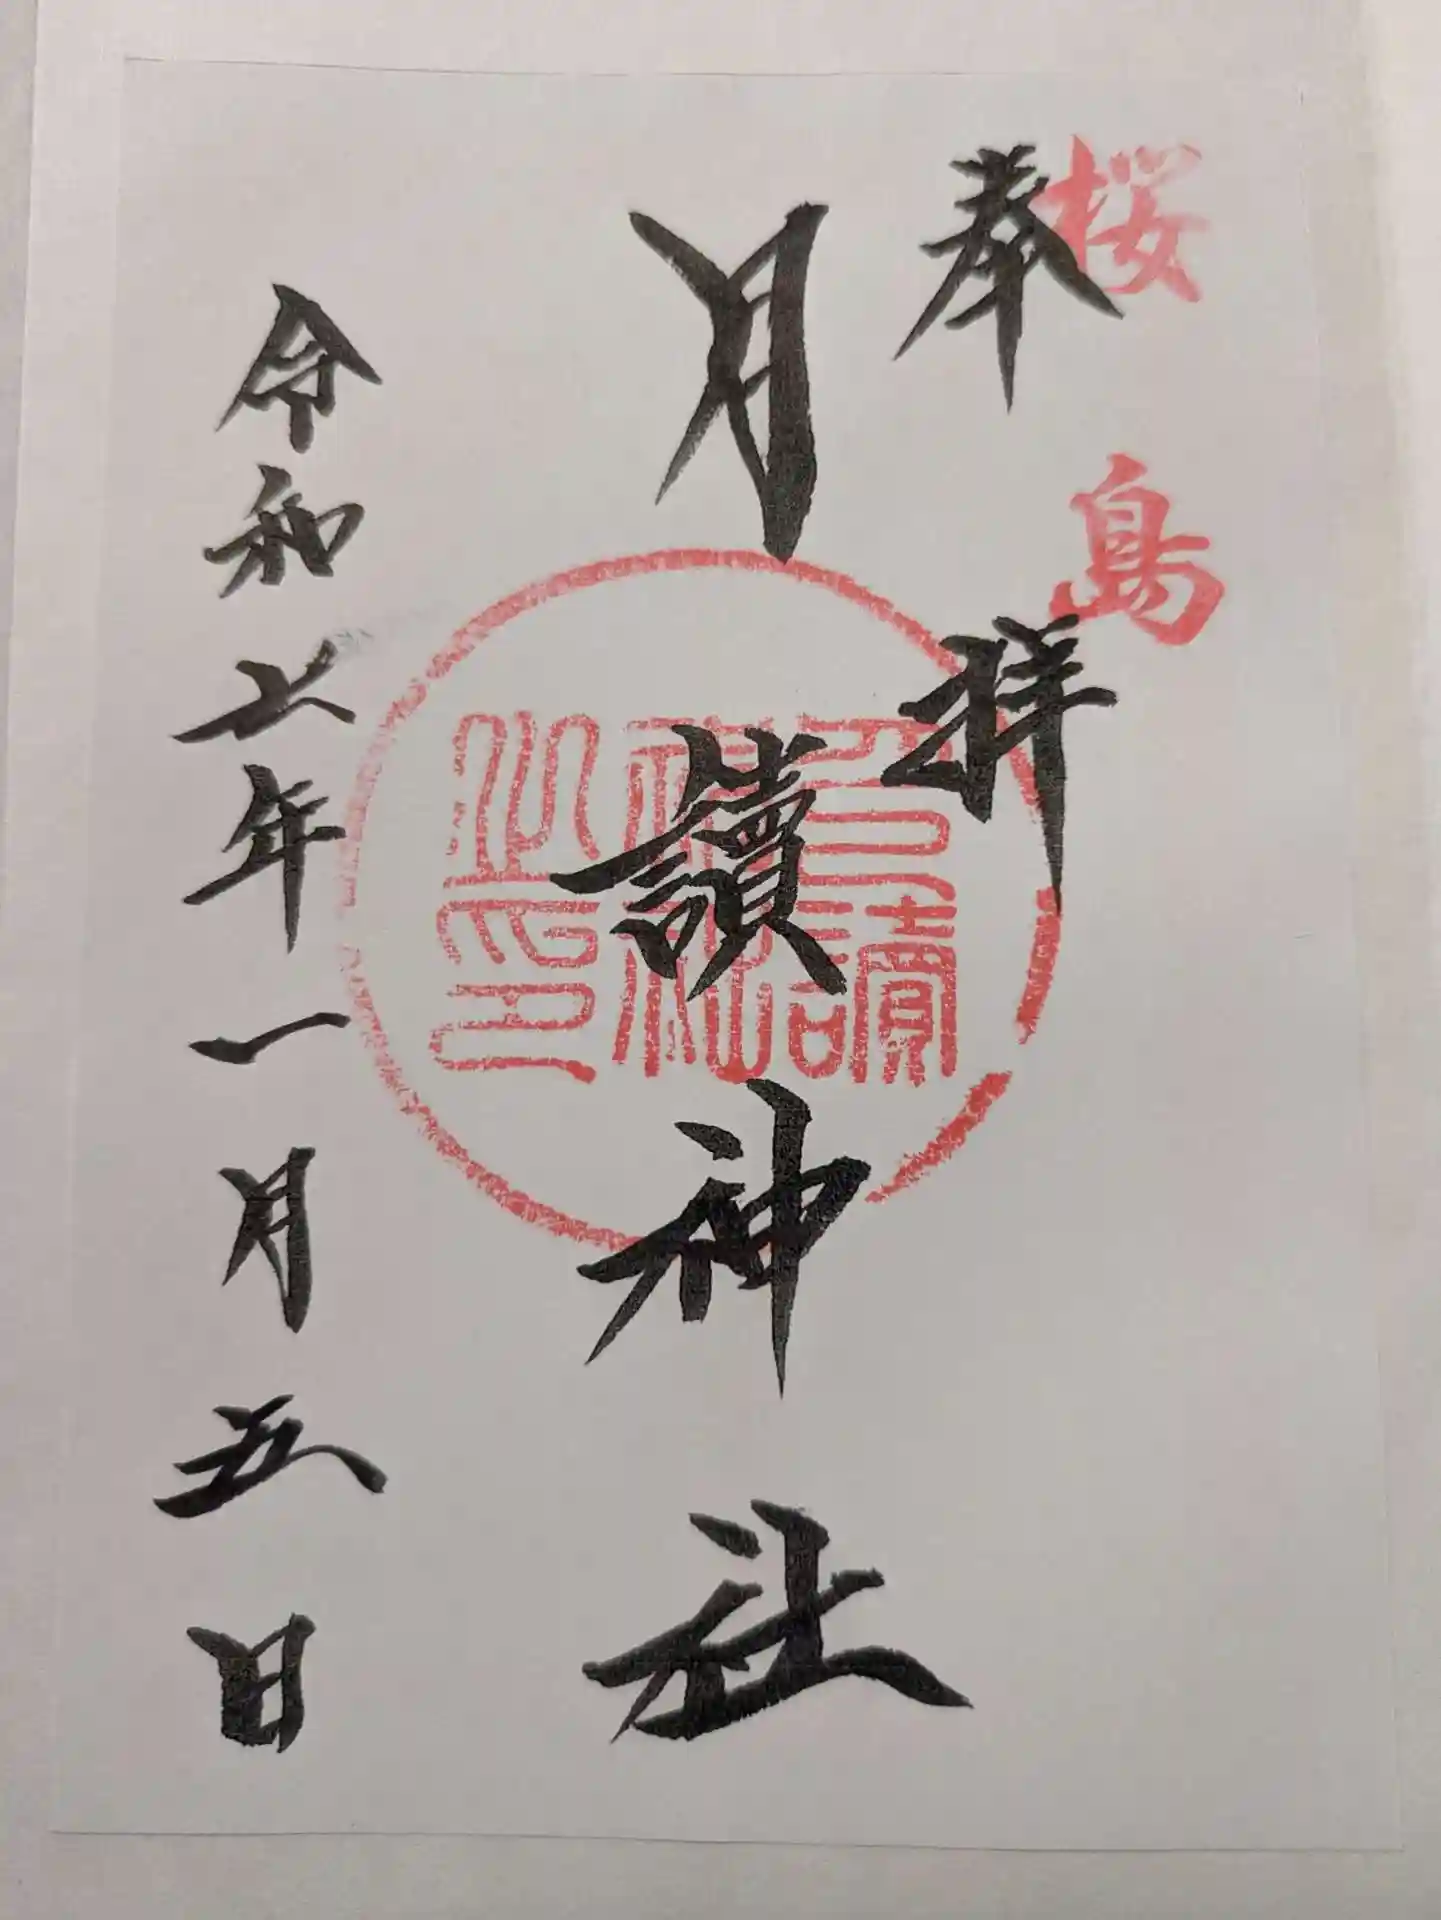 桜島
奉拝
月讀神社
月讀神社之印
令和六年一月五日